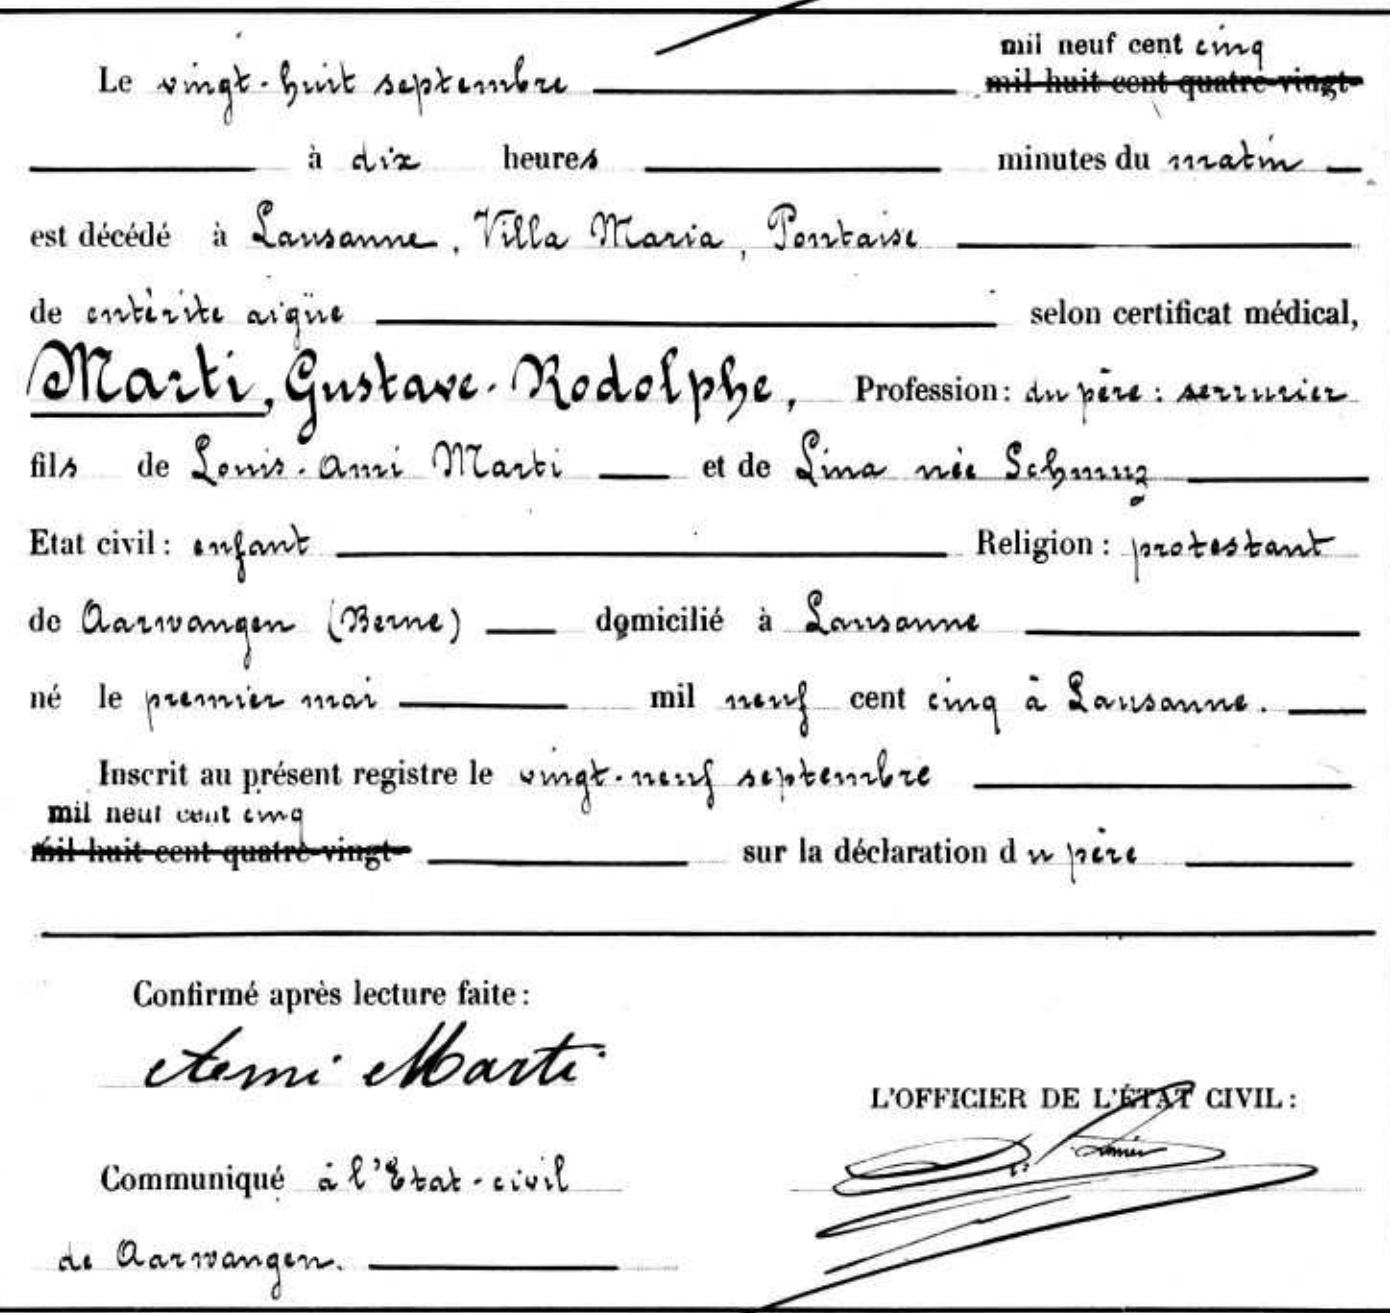 mil neuf cent cinq
Le vingt-huit septembre mil huit cent quatre-vingt-
à dix heures minutes du matin
est décédé à Lausanne, Villa Maria, Pontaise
de entérite aigüe selon certificat médical,
Marti, Gustave-Rodolphe, Profession: du père: serrurier
fils de Louis-Ami Marti et de Lina née Schmuz
Etat civil: enfant Religion: protestant
de Aarwangen (Berne) domicilié à Lausanne
né le premier mai mil neuf cent cinq à Lausanne.
Inscrit au présent registre le vingt-neuf septembre
mil neuf cent cinq
mil huit cent quatre-vingt- sur la déclaration du père
Confirmé après lecture faite:
Ami Marti
L'OFFICIER DE L'ÉTAT CIVIL:
Communiqué à l'Etat-civil
de Aarwangen.